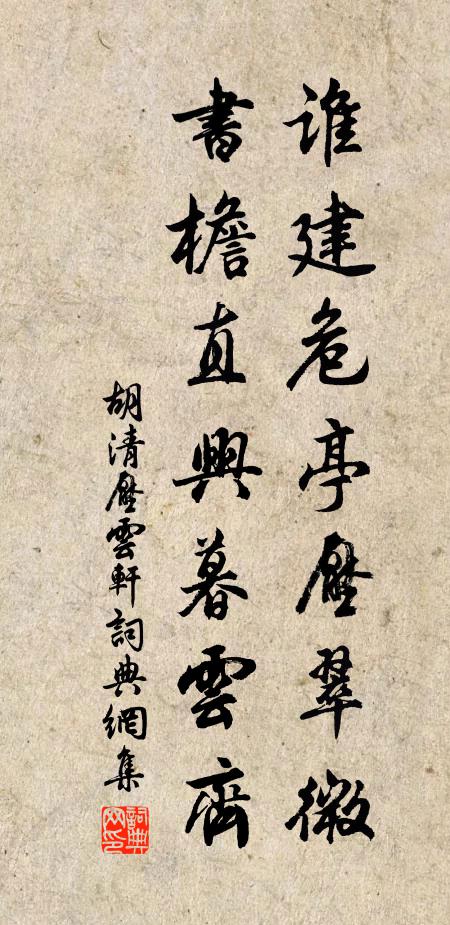 誰建危亭壓翠微
書檐直興暮雲齊
胡清壓雲軒詞典網集
詞典網印